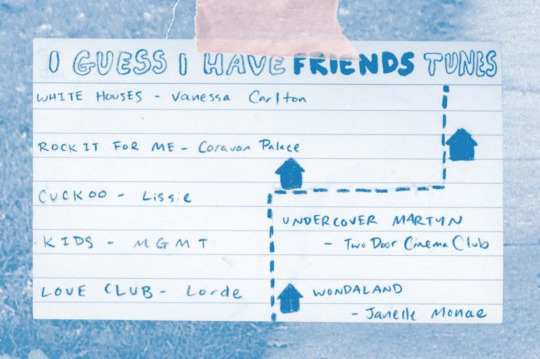 I GUESS I HAVE FRIENDS TUNES
WHITE HOUSES - Vanessa Carlton
ROCK IT FOR ME - Caravan Palace
CUCKOO - Lissie
UNDERCOVER MARTYN
- Two Door Cinema Club
KIDS - MGMT
LOVE CLUB - Lorde
WONDALAND
- Janelle Monae